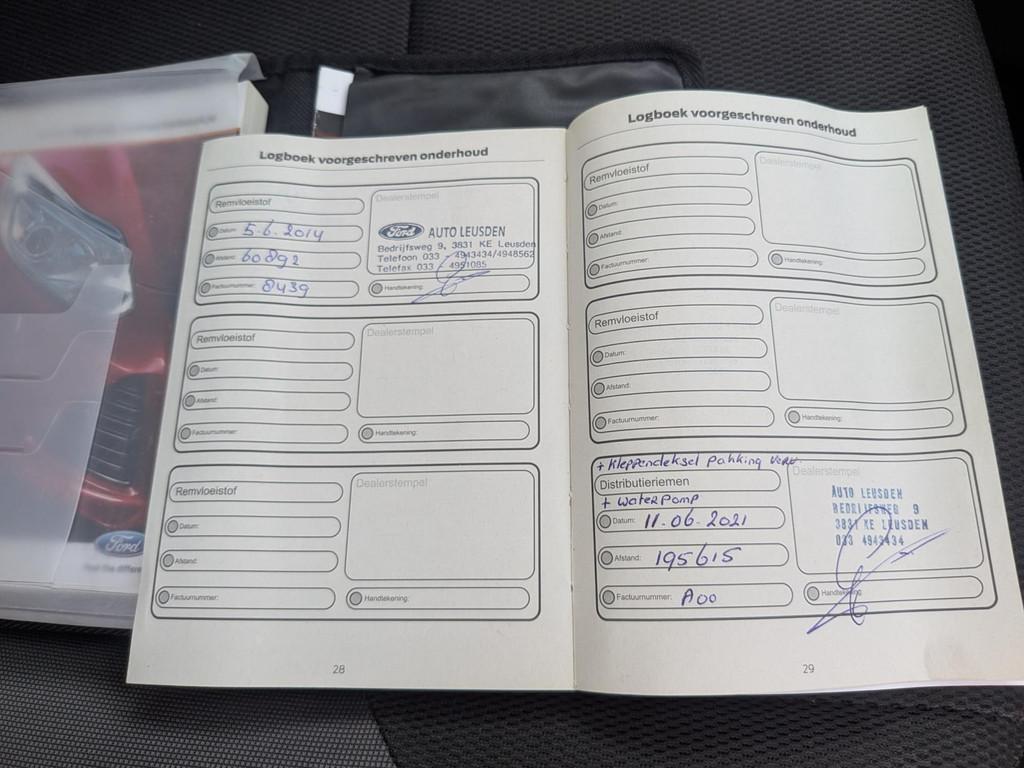 Logboek voorgeschreven onderhoud
Remvloeistof
Dealerstempel
Datum: 5.6.2014
Ford AUTO LEUSDEN
Bedrijfsweg 9, 3831 KE Leusden
Afstand: 60892
Telefoon 033 - 4943434/4948562
Telefax 033 - 4951085
Factuurnummer: 8439
Handtekening:
Remvloeistof
Dealerstempel
Datum:
Afstand:
Factuurnummer:
Handtekening:
Remvloeistof
Dealerstempel
Datum:
Afstand:
Factuurnummer:
Handtekening:
28
Ford
Feel the difference
Logboek voorgeschreven onderhoud
Remvloeistof
Dealerstempel
Datum:
Afstand:
Factuurnummer:
Handtekening:
Remvloeistof
Dealerstempel
Datum:
Afstand:
Factuurnummer:
Handtekening:
+ Kleppendeksel pakking verv.
Distributieriemen
Dealerstempel
+ waterpomp
Datum: 11.06.2021
AUTO LEUSDEN
BEDRIJFSWEG 9
3831 KE LEUSDEN
033 4943434
Afstand: 195615
Factuurnummer: A00
Handtekening:
29